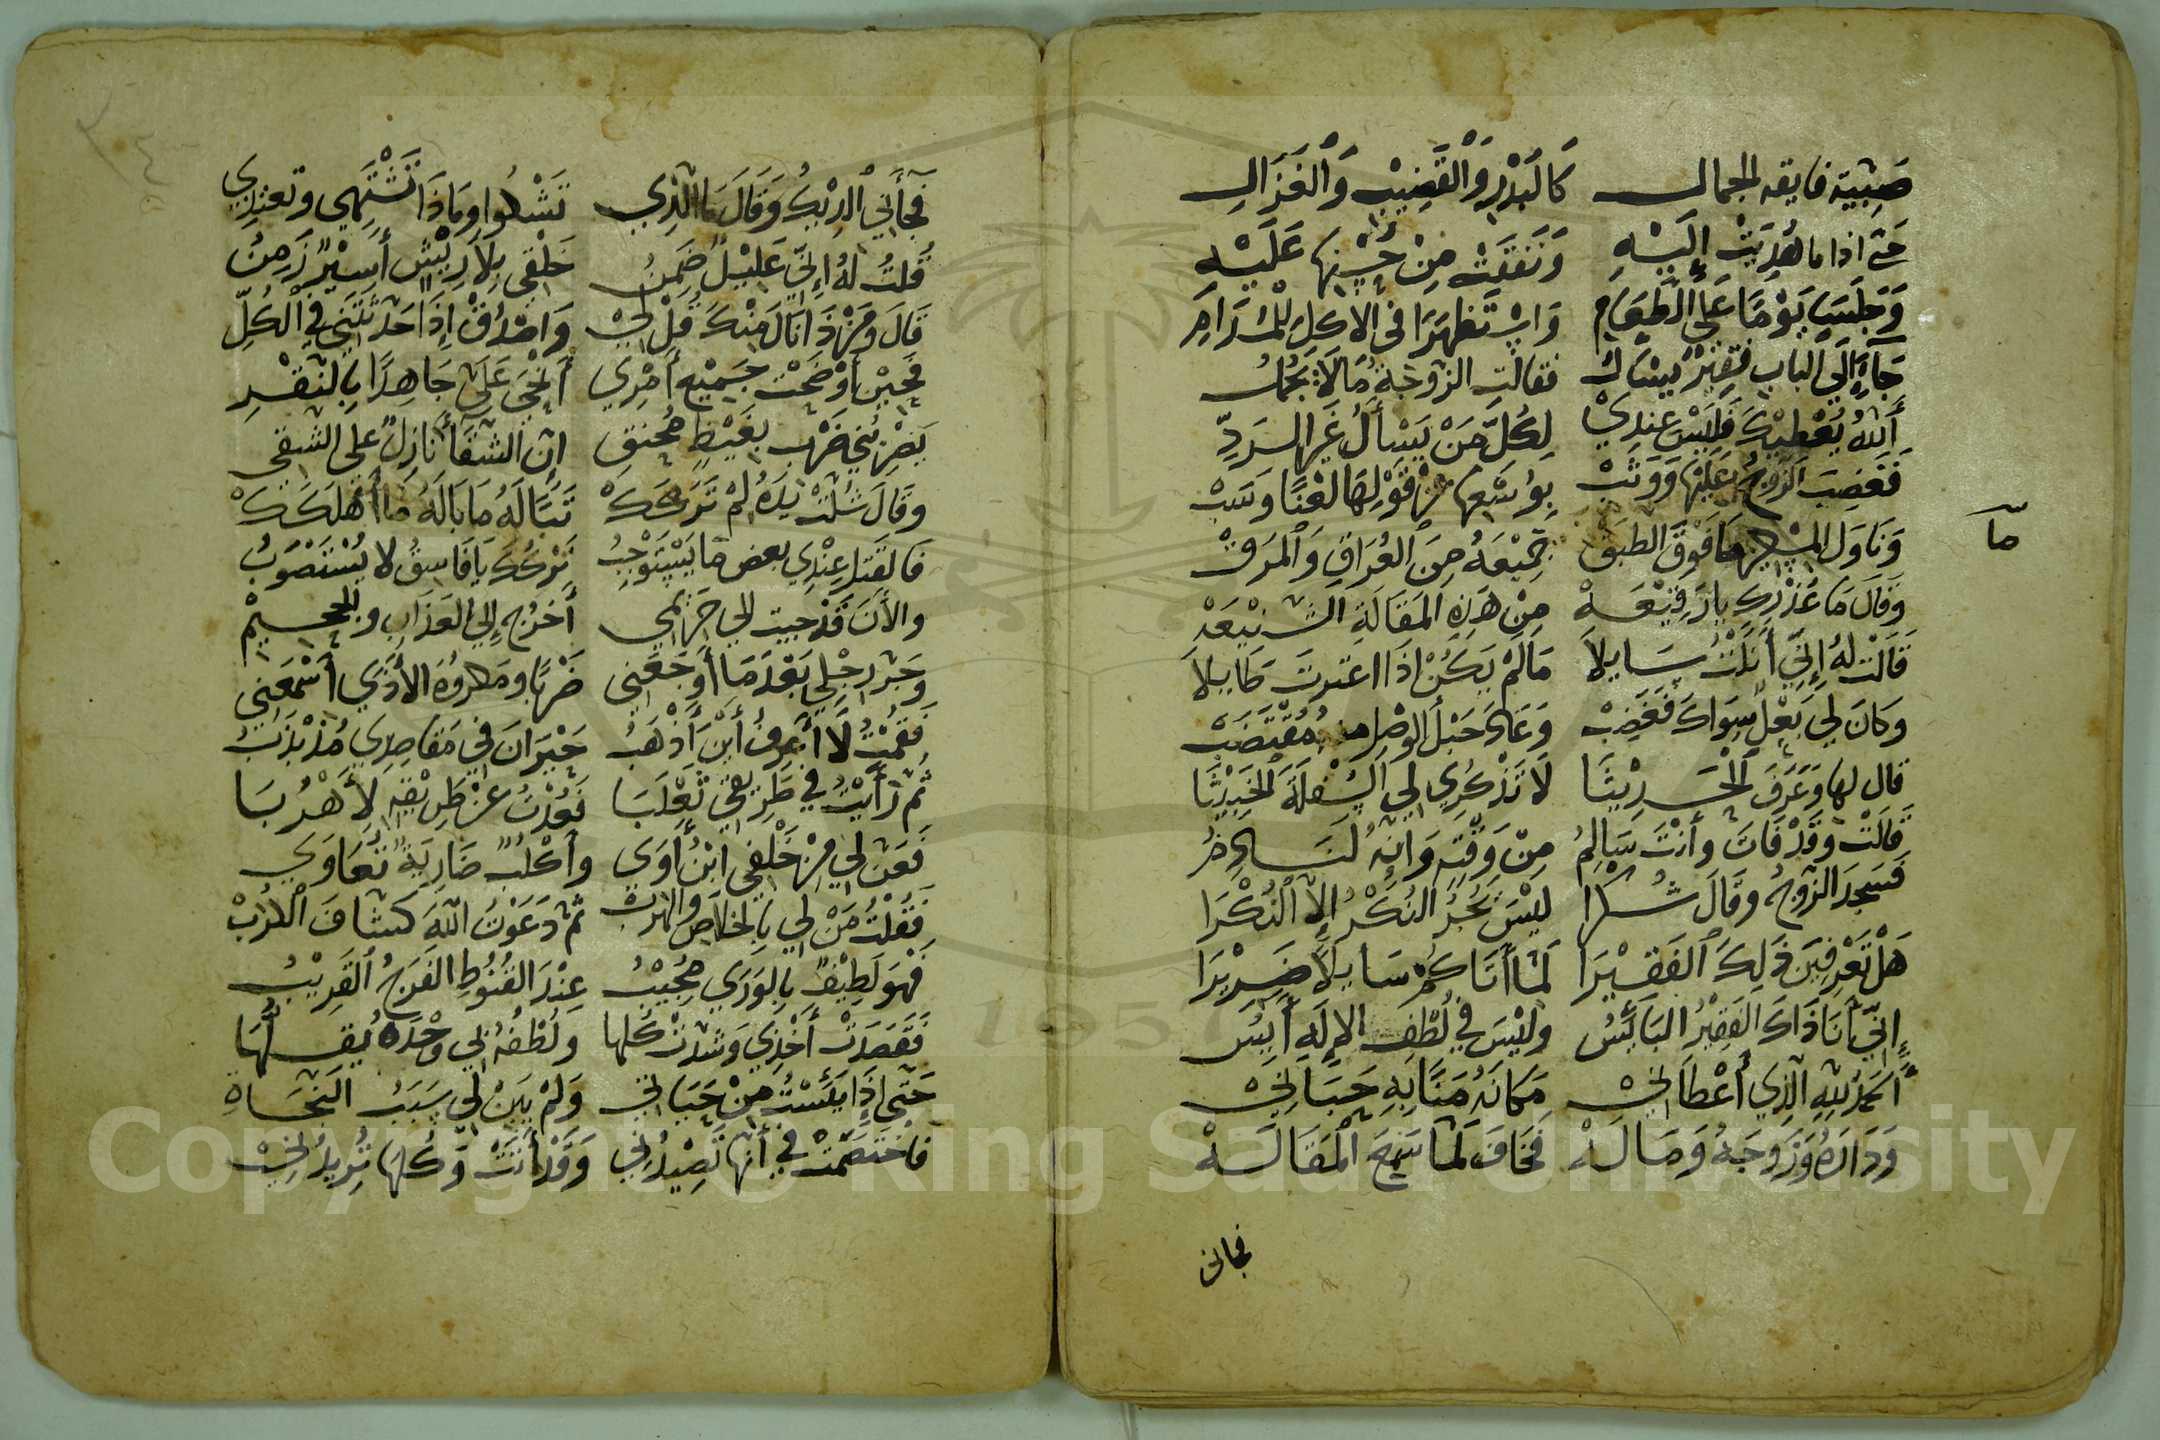 صَبِيَّة فايقه الجمال كَالبَدْرِ وَالْقَضِيبْ وَالْغَزَالِ
حَتّى اذا ما هُدِيَتْ إِلَيْهِ وَنَفَقَتْ مِنْ حُسْنِهَا عَلَيْهِ
وَجَلَسَا يَوْمًا عَلَى الطَّعَامِ وَاسْتَظْهَرَا في الاكلِ للمُدَامِ
جَآءَ إِلَى الباب فقِيْرٌ يسْأَلُ فقالتِ الزَّوجَةُ مَا لَا يَجْمُلُ
أَللهُ يُعْطِيْكَ فَلَيْسَ عِندِيْ لِكُلِّ مَنْ يَسْأَلُ غَيْرَ الرَدِّ
فَغَضِبَ الزَّوجُ عَلَيْهَا وَوَثَبْ يُوسِعُهَا مِنْ قَوْلِهَا لَعْنًا وَسَبْ
وَنَاوَل المِسْكِيْنَ مَا فَوْقَ الطبَق جَمِيْعَهُ مِنَ العُرَاقِ وَالمَرَقْ
مآ
وَقَالَ مَا عُذْرُكِ يا رَفِيْعَهْ مِنْ هَذِهِ المَقَالَةِ الشَّنِيْعَهْ
قَالَتْ لهُ إِنِّي أَنَلْتُ سَايلاَ مَا لَمْ يَكُنْ اذَا اعتبرتَ طَايلاَ
وكَانَ لِي بَعْلٌ سِوَاكَ فَغَضِبْ وَعَادَ حَبْلُ الوصْلِ منهُ مُقْتَضَبْ
قال لها وَعَرَفَ الْحَدِيْثَا لَا تَذْكُرِي لِي السِّفْلَةَ الخَبِيْثَا
قَالَتْ وَقَدْ فَاتَ وأَنْتَ سَالِمُ مِنْ وَقْتِهِ وَإنَّهُ لَنَادِمُ
فَسَجَدَ الزَّوجُ وقَالَ شُكْرَا ليْسَ يَجُرُّ النُكْرُ إِلَّا النُكْرَا
هَلْ تَعْرِفِيْنَ ذَلِكَ الفَقيْرَا لَمَّا أَتَاكُمْ سَايلًا ضَرِيْرَا
إِنِّي أَنَا ذَاكَ الفَقِيْرُ البَائِسُ وليْسَ في لُطْفِ الإِلَهِ آيِسُ
أَلحَمْدُ للهِ الَّذِي أَعْطَانِيْ مَكَانَهُ مَنًّا بِهِ حَبَانِيْ
وَدَارَهُ وَزَوجَهُ وَمَالَهْ فَخَافَ لَمَّا سَمِعَ المَقَالَهْ
فجانى
فَجَآنِي الدِّيْكُ وَقَالَ مَا الَّذِي تَشْكُوا ومَاذَا تَشْتَهِي وتَغْتَذِي
قُلتُ لهُ إِنِّي عَلِيْلٌ ضَمِنُ خَلْقِي بِلَا رِيْشٍ أَسِيْرٌ زَمِنُ
قَالَ ومَنْ ذَا نَالَ مِنْكَ قُلْ لِيْ وَاصْدُقْ إِذَا حَدَّثتَنِي في الكُلِّ
فَحِيْنَ أَوْضَحْتُ جَمِيْعَ أَمْرِي أَنْحَى عَلَيَّ جَاهِدًا بِالنَّقْرِ
يَضْرِبُنِي ضَرْبَ بِغَيْظٍ مُحْنِقِ إنّ الشَّقَآ نَازِلٌ على الشقي
وقَالَ شُلَّتْ يَدُهُ لِمْ تَرَكَكْ تَبًّا لَهُ مَا بَالَهُ مَا أَهْلَكَكْ
فَالقَتْلُ عِنْدِي بعضُ مَا يَسْتَوْجِبُ تَرْكُكَ يا فَاسِقُ لا يُسْتَصْوَبُ
والأنَ قَدْ جيت الى حَرِيْمِي أُخْرُج إِلَى العَذَابِ والجحِيْمِ
وَجَرَّ رِجْلِي بَعْدَمَا أَوْجَعَنِي ضَرْبًا ومَكروُهَ الأَذَى أَسْمَعَنِي
فَقُمْتُ لَا أَعْرِفُ أَيْنَ أَذْهَبُ حَيْرَانَ فِي مَقَاصِدِي مُذَبْذَبُ
ثُمَّ رَأَيْتُ فِي طَرِيْقِي ثَعْلَبَا فَعُدْتُ عَنْ طَرِيْقِهِ لِأَهْرُبَا
فَعَنَّ لِي مِنْ خَلْفِي ابْنُ آوَى وأَكْلُبٌ ضَارِيَةٌ تَعَاوَى
فَقُلْتُ مَنْ لِي بِالخَلَاصِ والهربْ ثمَّ دَعَوْتُ اللهَ كشَّافَ الكُرَبْ
فَهْوَ لَطِيْفٌ بِالوَرَى مُجِيْبُ عِنْدَ القُنُوطِ الفَرَجُ القَرِيْبُ
فَقَصَدَتْ أَخْذِي وَشَدَّتْ كُلها ولُطْفُهُ لِي وَحْدَهُ يَفُلُّهَا
حَتَّى إِذَا يَئِسْتُ مِنْ حَيَاتي وَلَمْ يَبِنْ لِي سَبَبُ النَّجَاةِ
فاختَصَمَتْ فِي أَنَّها تَصِيْدُنِي وَقَدْ أَتَتْ وَكُلُّهَا تُرِيْدُنِيْ